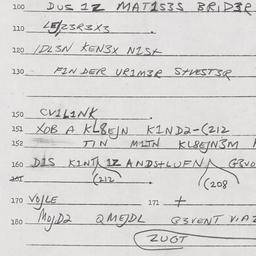 100 DUS 1Z MAT1S3S BRID3R
110 LEJZ3R3X3
120 IDL3N KEN3X NIST
130 FINDER UR1M3R SHVEST3R
150 CV1L1NK
151 XOB A KL8EJN KIND2-(212
152 TIN M1TN KL8EJN3M
160 DIS KINT 1Z ANDSHLUFN G3VO
(212 (208
161
170 VOJLE 171 +
180 MOJD2 QMEJDL G3VENT VIAZ
ZUGT